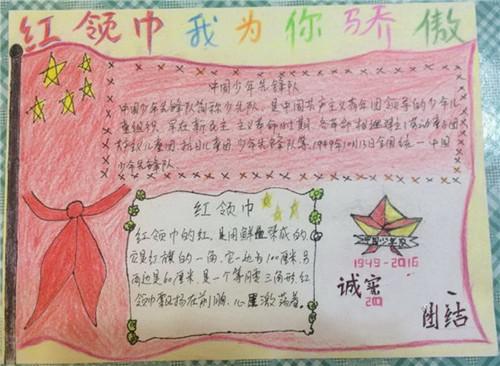 红领巾我为你骄傲
中国少年先锋队
中国少年先锋队简称少先队，是中国共产主义青年团领导的少年儿
童组织，早在新民主主义革命时期，各革命
1949年10月13日全国统一中国
少年先锋队
红领巾
红领巾的红，是用鲜血染成的，
它是红旗的一角，它一边为100厘米，另
两边是60厘米，是一个等腰三角形，红
领巾飘扬在前胸，心里激荡着。
1949-2016
诚实
团结